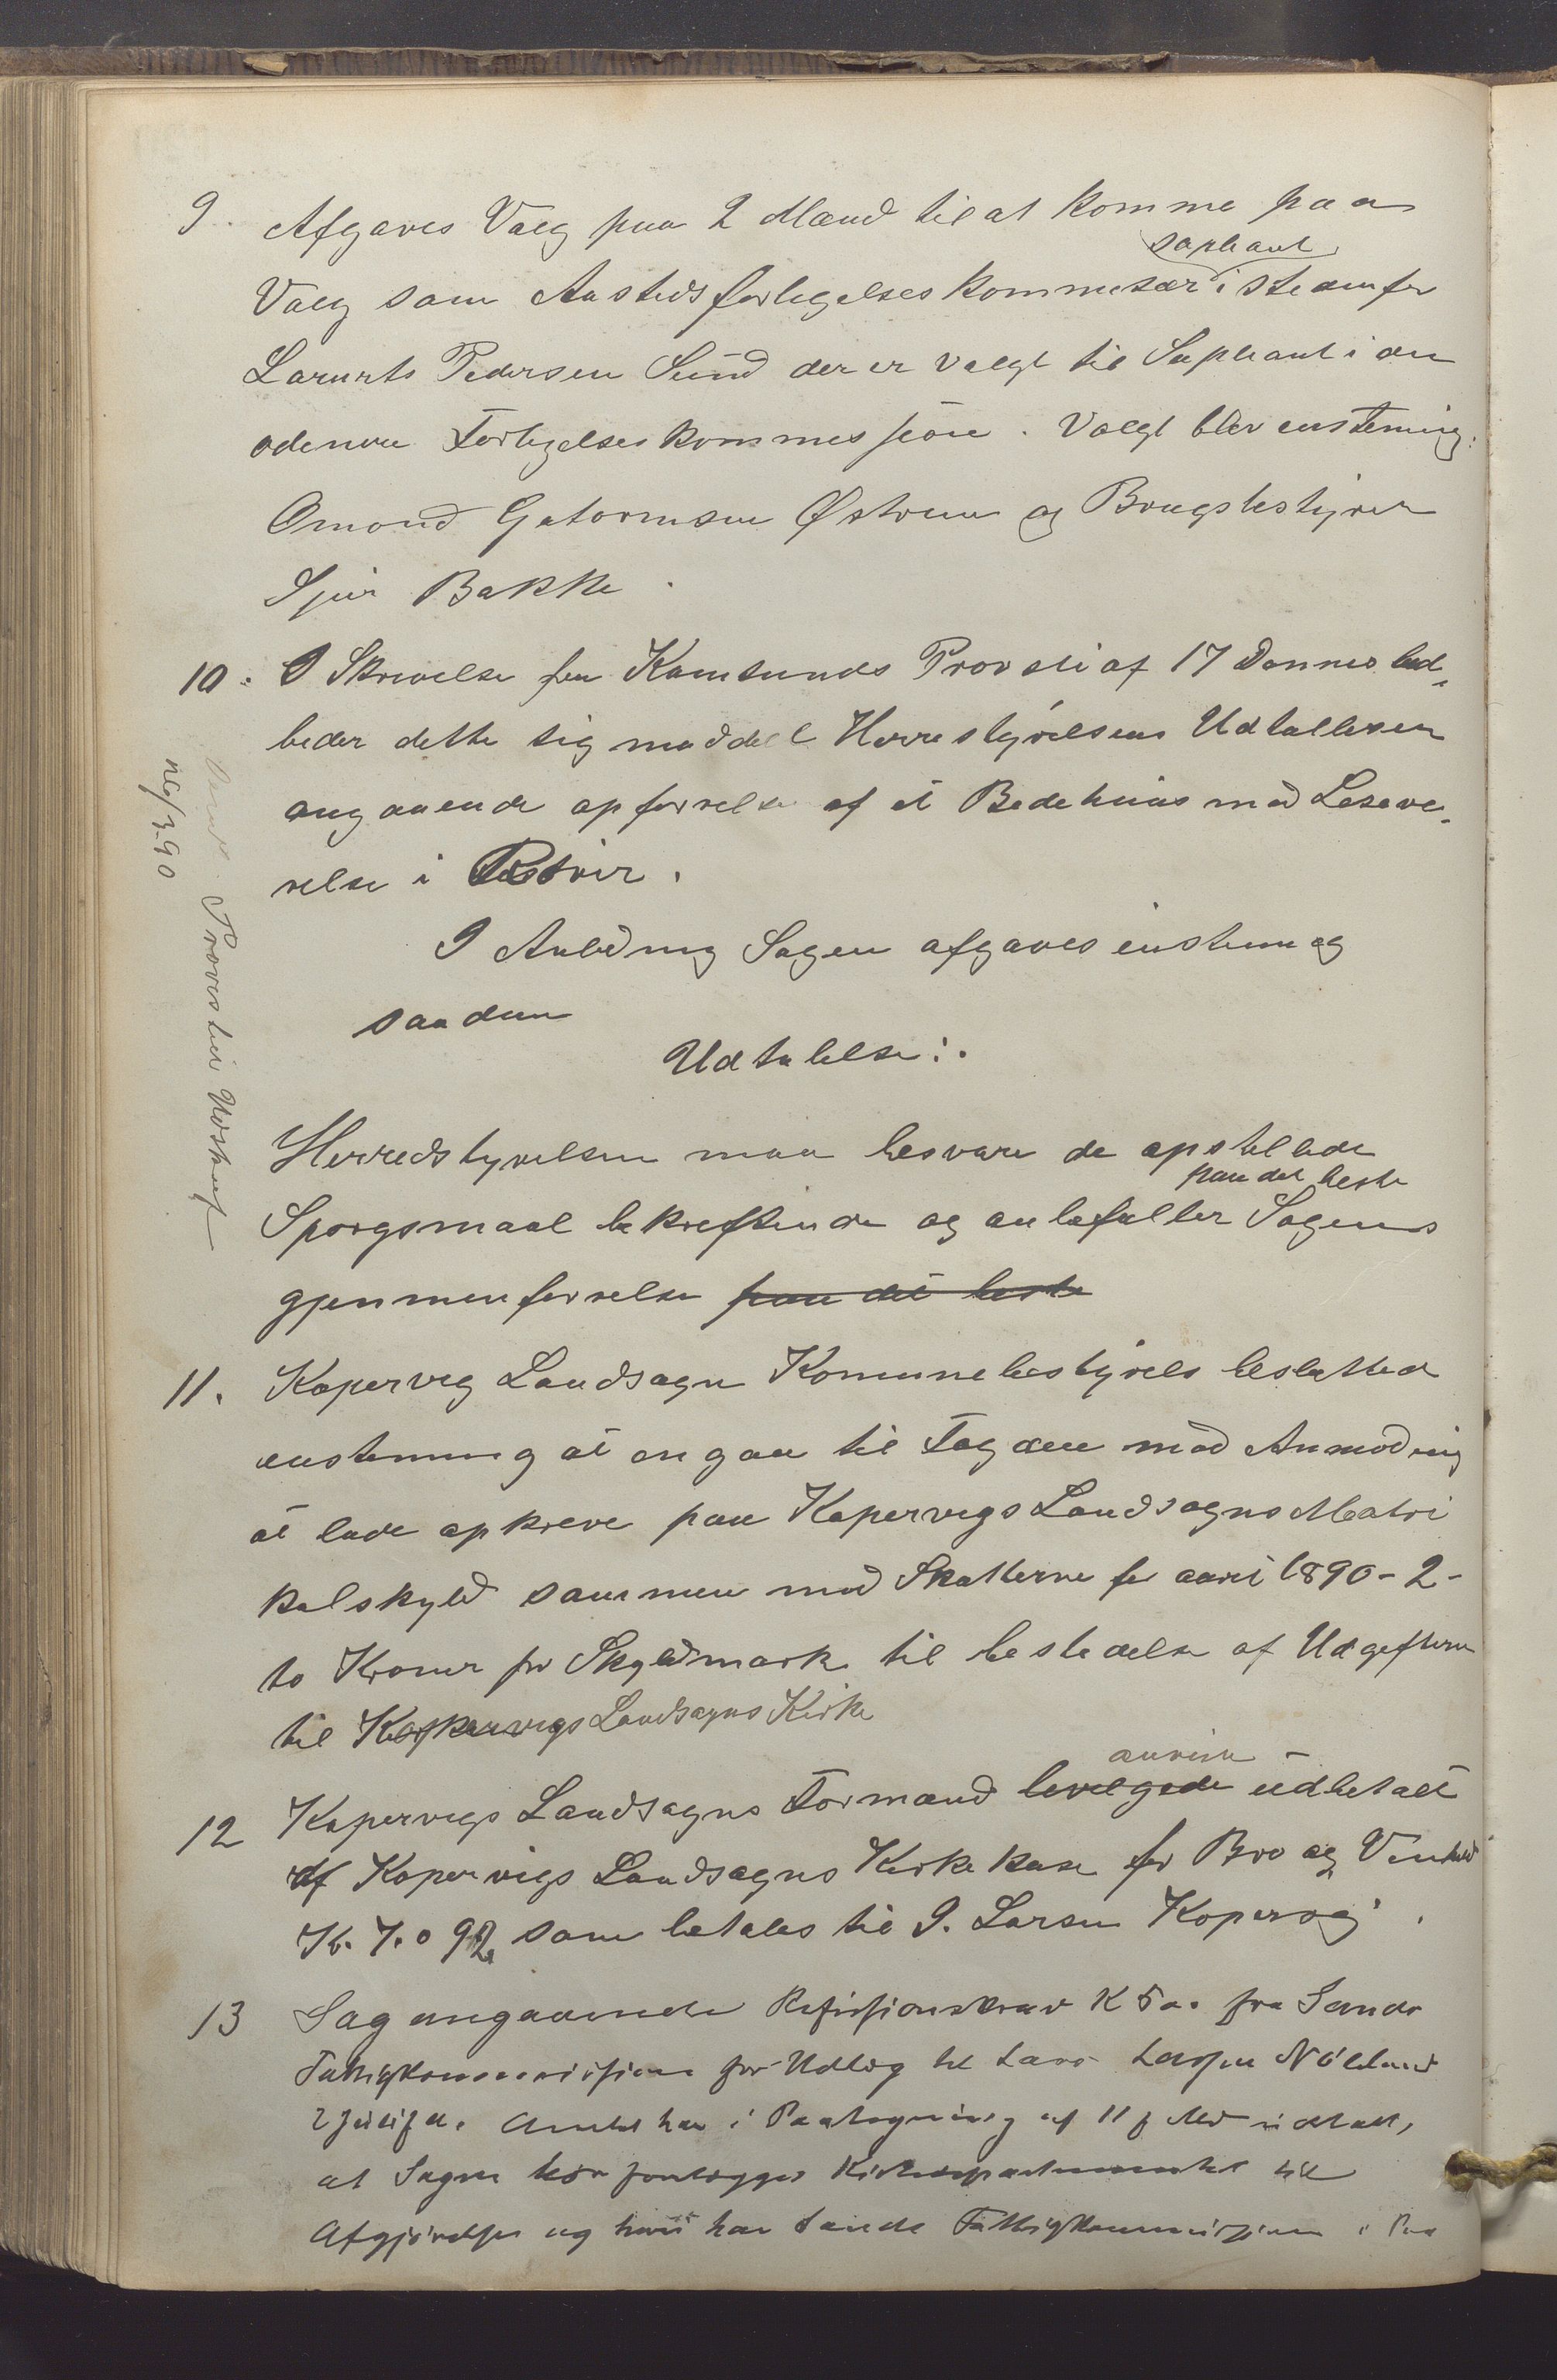 9. Afgaves Valg paa 2 Mænd til at komme paa
supleant
Valg som Aastedsforligelseskommesær i stedenfor
Larurts Pedersen Sund der er valgt til Supleant i den
odenære Forligelseskommessjon. Valgt blev enstemig:
Omond Gutormsen Østrem og Brugsbestyrer
Sjur Bakke.
10. I Skrivelse fra Karmsunds Provsti af 17 Dennes ud„
beder dette sig meddelt Herrestyrelsens Udtallesen
angaaende opførelse af et Bedehuus med Leseve„
relse i
I Anledning Sagen afgaves enstemig
saadan
Udtalelse:.
Herredstyrelsen maa besvare de opstillede
paa det beste
Sporgsmaal bekreftende og anbefaller Sagens
gjennemførelse paa det beste
11. Kopervig Landsogn Komunebestyrels besluttede
enstemmig at angaa til Fogden med Anmodning
at lade opkreve paa Kopervigs Landsogns Matri
kelskyld sammen med Skatterne for aaret 1890 - 2 -
to Kroner pr Skyldmark til bestridelse af Udgefterne
til Kopervigs Landsogns Kirke
anvise
12 Kopervigs Landsogns Formand bevilgede udbetalt
af Kopervigs Landsogns Kirkekase for Bro og
Kr. 7.092 som betales til I. Larsen Kopervig.
13 Sag angaaende Refusjonskrav K 50. fra Sands
Fattigkommissjon for Udlæg til Lars Larsen
Amtet har i Paategning af 11 f. Md. udtalt,
at Sagen bør forelægges Kirkedepartementet til
Afgjørelse og har Sands Fattigkommisjon i Paa
Sendt Provstiet Udskrift
26/3 90